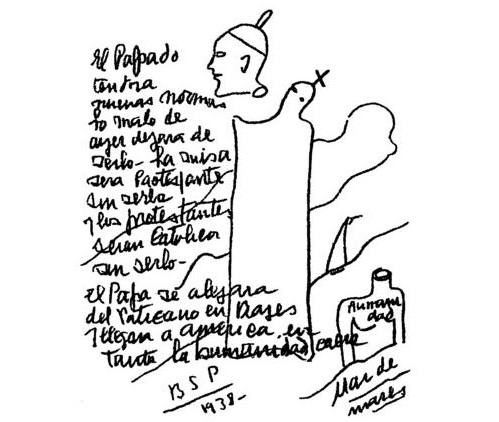 El Papado
tendra
nuevas normas
lo malo de
ayer dejara de
serlo - La misa
sera Protestante
sin serlo
y los protestantes
seran Catolicos
sin serlo -
El Papa se alejara
del Vaticano en viajes
y llegara a America, en
tanto la humanidad caera
BSP
1938-
Humanidad
Mar de
mares